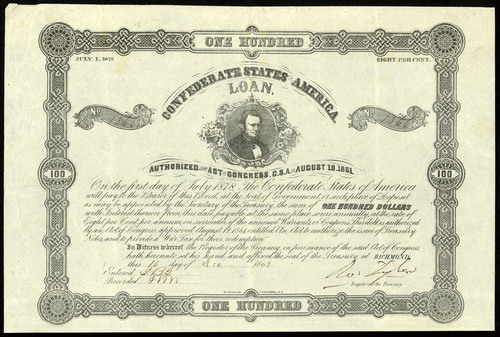 ONE HUNDRED
JULY 1, 1878
EIGHT PER CENT.
CONFEDERATE STATES AMERICA.
LOAN.
No
AUTHORIZED BY ACT OF CONGRESS, C.S.A. OF AUGUST 19, 1861.
100
100
On the first day of July 1878, The Confederate States of America
will pay to the Bearer of this Bond, at the Seat of Government or such place of Deposit
as may be appointed by the Secretary of the Treasury, the sum of ONE HUNDRED DOLLARS
with Interest thereon from this date, payable at the same place, semi annually, at the rate of
Eight per Cent per annum, on surrender of the annexed Warrants or Coupons. This debt is authorized
by an Act of Congress approved August 19 1861, entitled An Act to authorize the issue of Treasury
Notes, and to provide a War Tax for their redemption.
In Witness whereof, the Register of the Treasury, in pursuance of the said Act of Congress
hath hereunto set his hand and affixed the seal of the Treasury at RICHMOND,
this day of 186
Entered
Recorded
Ro. Tyler
Register of the Treasury
ONE HUNDRED